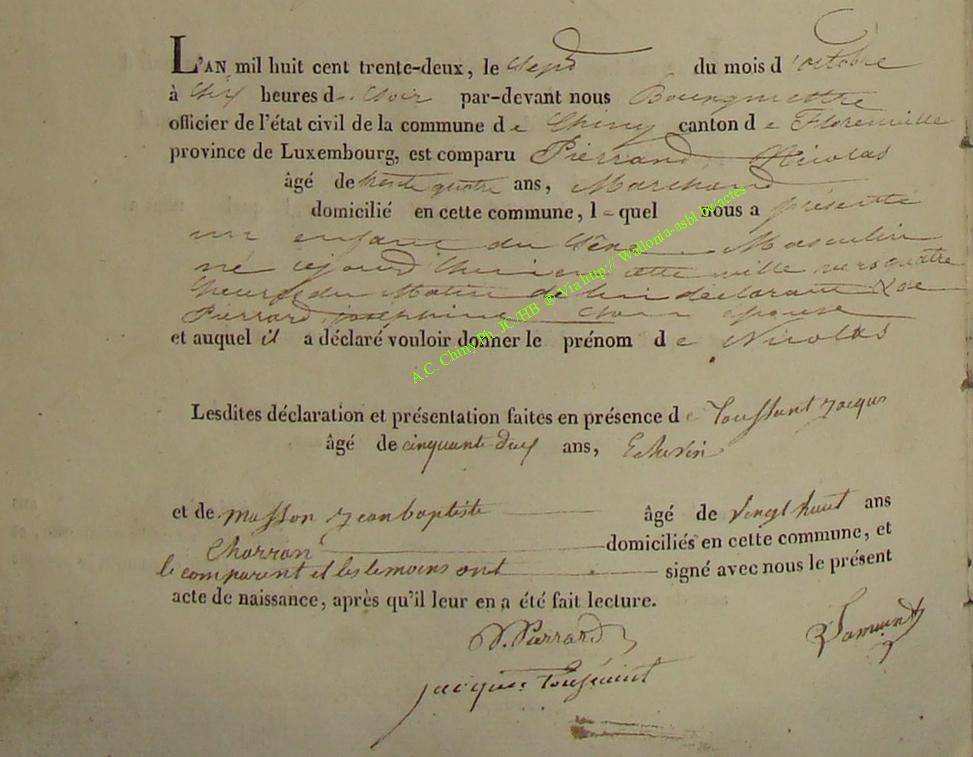 L'AN mil huit cent trente-deux, le Sept du mois d'octobre
à Six heures d.. Soir par-devant nous Bourgmestre
officier de l'état civil de la commune de Chiny canton de Florenville
province de Luxembourg, est comparu Pierrard Nicolas
âgé de trente quatre ans, Marchand
domicilié en cette commune, lequel nous a présenté
un enfant du Sexe Masculin
né cejourd'hui en cette ville vers quatre
heures du Matin de lui déclarant & de
Pierrard Josephine Son épouse
et auquel il a déclaré vouloir donner le prénom de Nicolas
Lesdites déclaration et présentation faites en présence de Toussant Jacques
âgé de cinquante deux ans, Echevin
et de Masson Jean baptiste âgé de vingt huit ans
Charron domiciliés en cette commune, et
le comparent et les temoins ont signé avec nous le présent
acte de naissance, après qu'il leur en a été fait lecture.
N. Pierrard
jacques Toussaint
A.C. Chiny Ph. JC/HB @ Via http:// Wallonia-asbl.be/actes